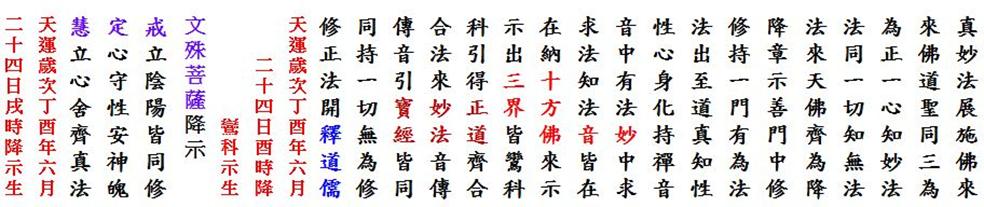 真妙法展施佛來
來佛道聖同三為
為正一心知妙法
法同一切知無法
法來天佛齊為降
降章示善門中修
修持一門有為法
法出至道真知性
性心身化持禪音
音中有法妙中求
求法知法音皆在
在納十方佛來示
示出三界皆鸞科
科引得正道齊合
合法來妙法音傳
傳音引寶經皆同
同持一切無為修
修正法開釋道儒
天運歲次丁酉年六月
二十四日酉時降
鸞科示生
文殊菩薩降示
戒立陰陽皆同修
定心守性安神魄
慧立心舍齊真法
天運歲次丁酉年六月
二十四日戌時降示生